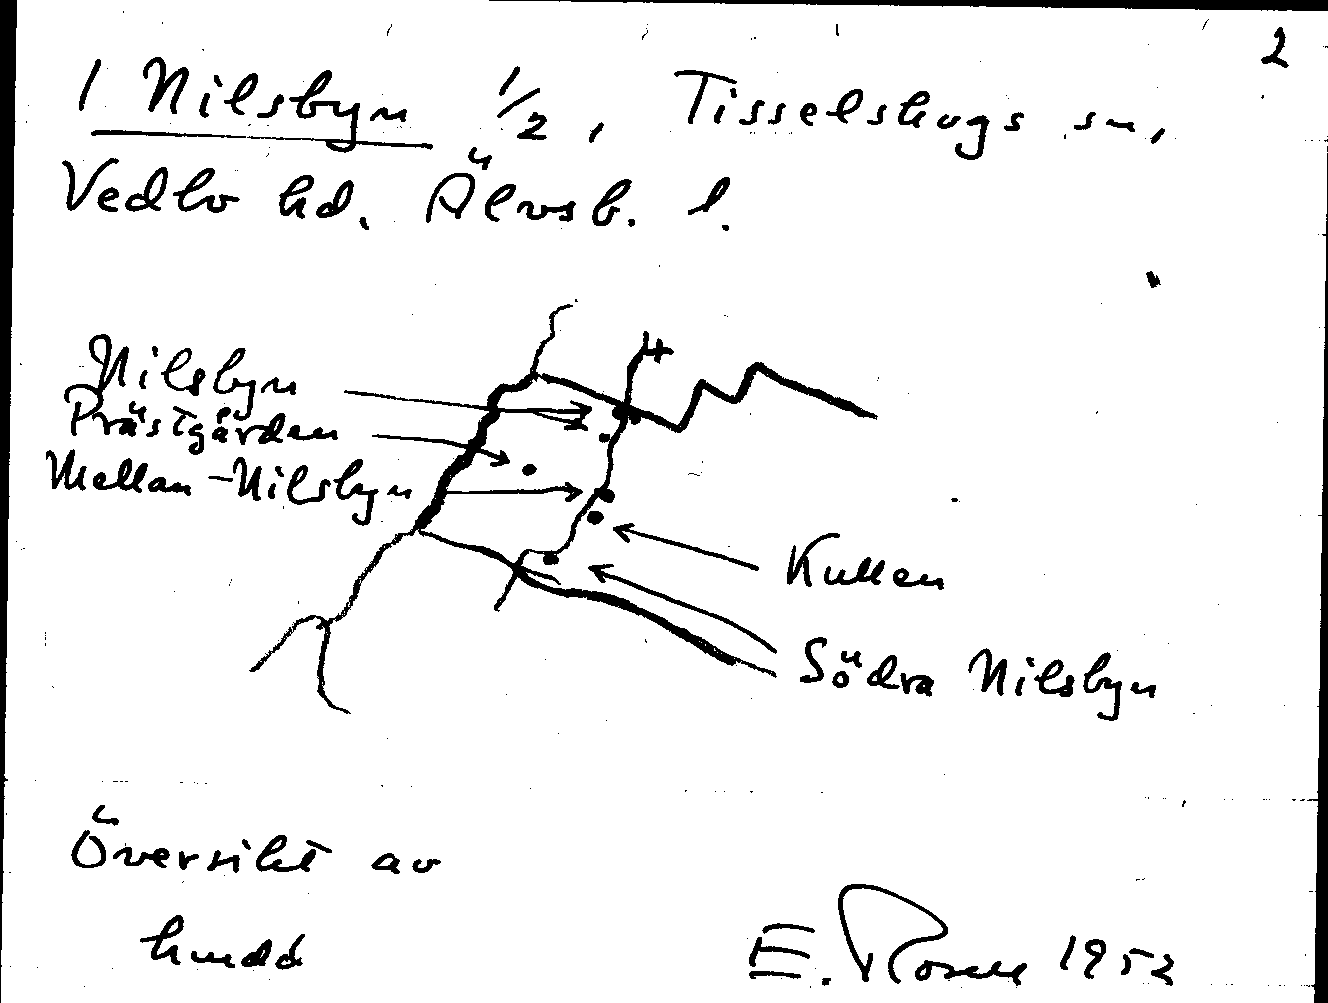 2
1 Nilsbyn 1/2, Tisselskogs sn,
Vedbo hd. Älvsb. l.
Nilsbyn
Prästgården
Mellan-Nilsbyn
Kullen
Södra Nilsbyn
Översikt av
E. 1952